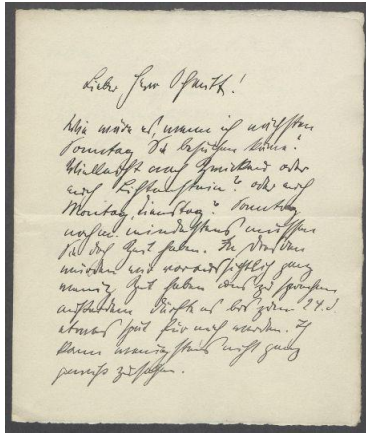 Lieber Herr Schmidt!
Wie wäre es, wenn ich nächsten
Sonntag Sie besuchen käme?
Vielleicht nach Zwickau oder
nach Lichtenstein? oder auch
Montag, Dienstag? Sonntag
nachm. mindestens müssten
Sie doch Zeit haben. In Dresden
würden wir voraussichtlich ganz
wenig Zeit haben uns zu sprechen
außerdem dürfte es bis zum 24. d.
etwas spät für mich werden. Ich
kann wenigstens nicht ganz
gewiß zusagen.